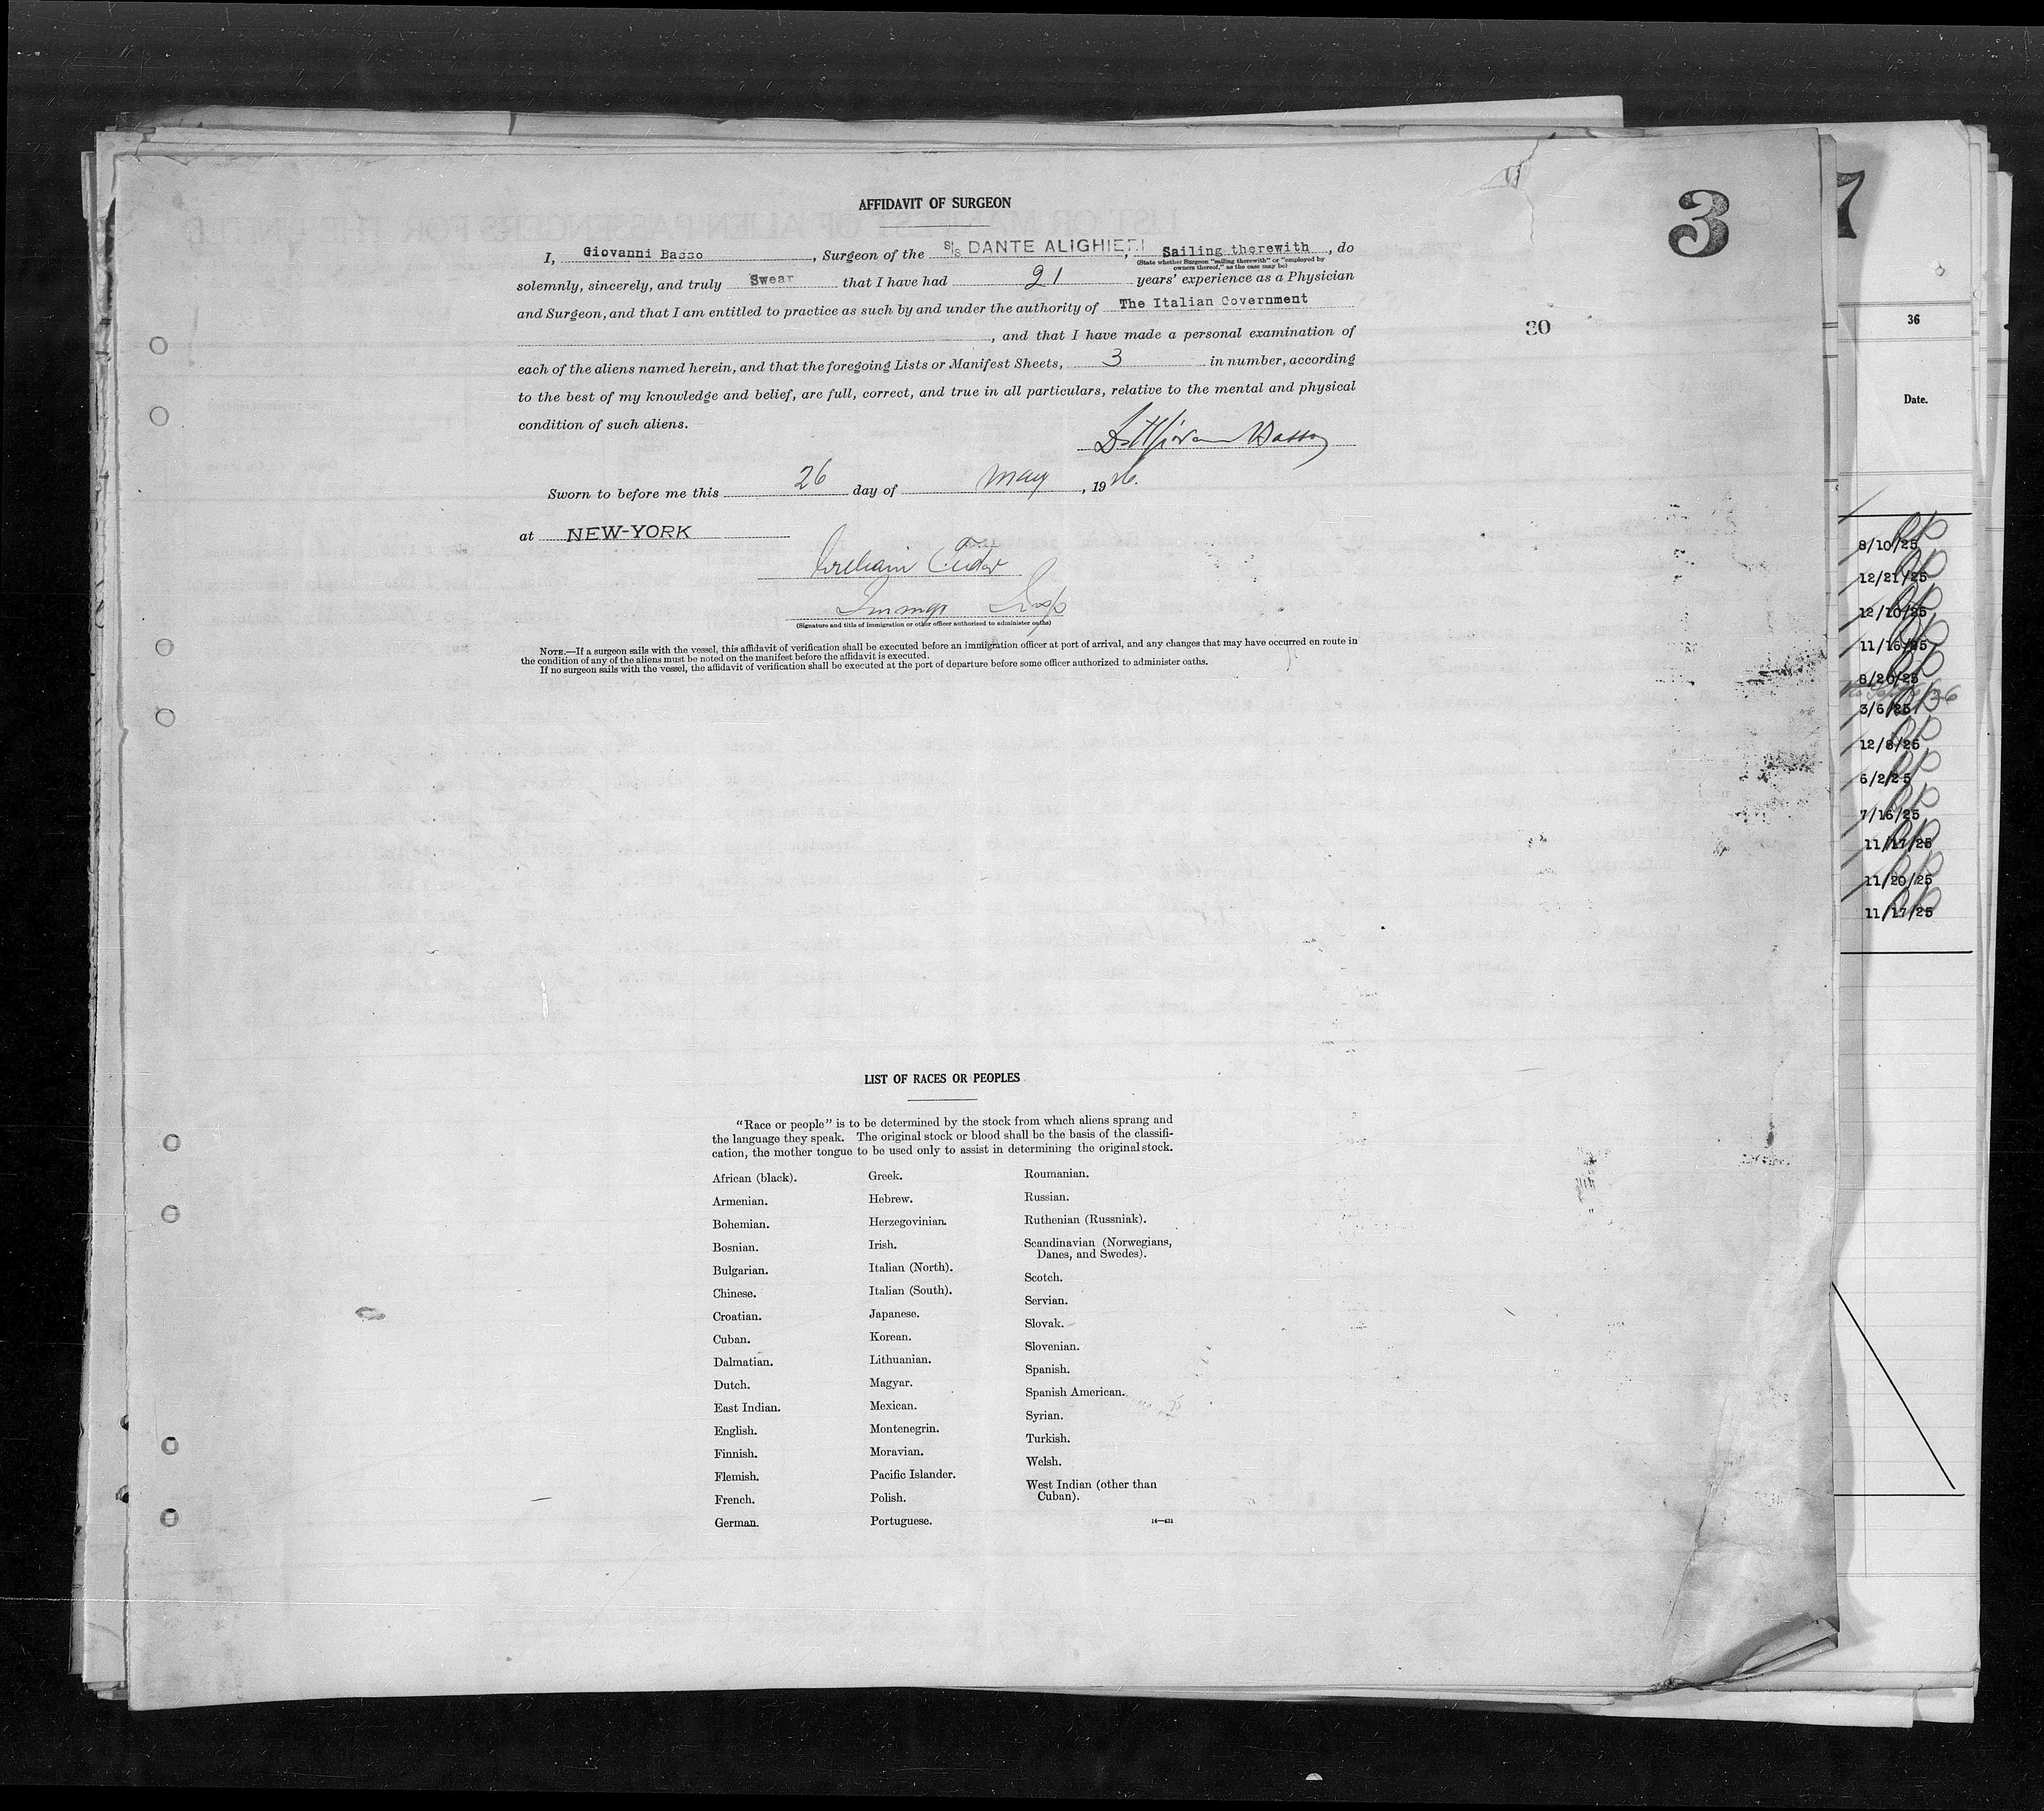 3
7
AFFIDAVIT OF SURGEON
I, Giovanni Basso, Surgeon of the S/S DANTE ALIGHIERI, Sailing therewith, do
(State whether Surgeon "sailing therewith" or "employed by
owners thereof," as the case may be)
solemnly, sincerely, and truly Swear that I have had 21 years' experience as a Physician
and Surgeon, and that I am entitled to practice as such by and under the authority of The Italian Government
, and that I have made a personal examination of
30
each of the aliens named herein, and that the foregoing Lists or Manifest Sheets, 3 in number, according
to the best of my knowledge and belief, are full, correct, and true in all particulars, relative to the mental and physical
condition of such aliens.
Basso
Sworn to before me this 26 day of May, 1926.
at NEW-YORK
William
Immgr Insp
(Signature and title of immigration or other officer authorized to administer oaths)
NOTE.—If a surgeon sails with the vessel, this affidavit of verification shall be executed before an immigration officer at port of arrival, and any changes that may have occurred en route in
the condition of any of the aliens must be noted on the manifest before the affidavit is executed.
If no surgeon sails with the vessel, the affidavit of verification shall be executed at the port of departure before some officer authorized to administer oaths.
LIST OF RACES OR PEOPLES
"Race or people" is to be determined by the stock from which aliens sprang and
the language they speak. The original stock or blood shall be the basis of the classifi-
cation, the mother tongue to be used only to assist in determining the original stock.
African (black).
Armenian.
Bohemian.
Bosnian.
Bulgarian.
Chinese.
Croatian.
Cuban.
Dalmatian.
Dutch.
East Indian.
English.
Finnish.
Flemish.
French.
German.
Greek.
Hebrew.
Herzegovinian.
Irish.
Italian (North).
Italian (South).
Japanese.
Korean.
Lithuanian.
Magyar.
Mexican.
Montenegrin.
Moravian.
Pacific Islander.
Polish.
Portuguese.
Roumanian.
Russian.
Ruthenian (Russniak).
Scandinavian (Norwegians,
Danes, and Swedes).
Scotch.
Servian.
Slovak.
Slovenian.
Spanish.
Spanish American.
Syrian.
Turkish.
Welsh.
West Indian (other than
Cuban).
36
Date.
8/10/25
12/21/25
12/10/25
11/16/25
8/20/25
3/6/25
12/8/25
6/2/25
7/16/25
11/17/25
11/20/25
11/17/25